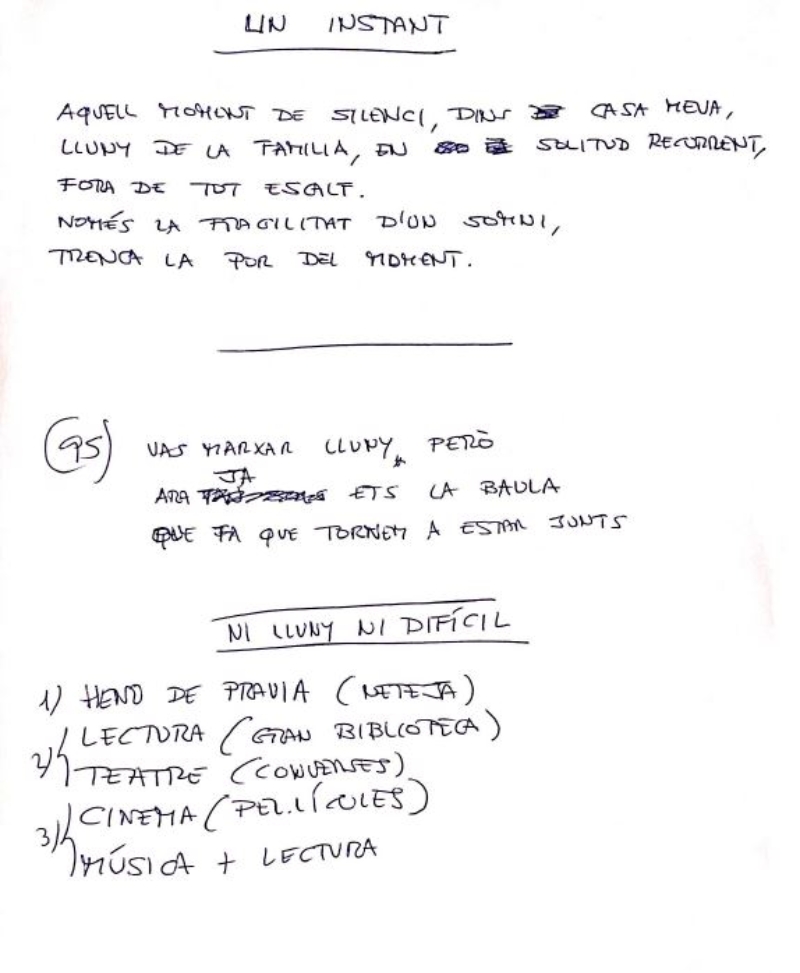 UN INSTANT
AQUELL MOMENT DE SILENCI, DINS CASA MEVA,
LLUNY DE LA FAMILIA, EN SOLITUD RECURRENT,
FORA DE TOT ESCALF.
NOMÉS LA FRAGILITAT D'UN SOMNI,
TRENCA LA POR DEL MOMENT.
95 VAS MARXAR LLUNY, PERÒ
JA
ARA ETS LA BAULA
QUE FA QUE TORNEM A ESTAR JUNTS
NI LLUNY NI DIFÍCIL
1) HENO DE PRAVIA (NETEJA)
2) LECTURA (GRAN BIBLIOTECA)
TEATRE (CONVERSES)
3) CINEMA (PEL.LÍCULES)
MÚSICA + LECTURA